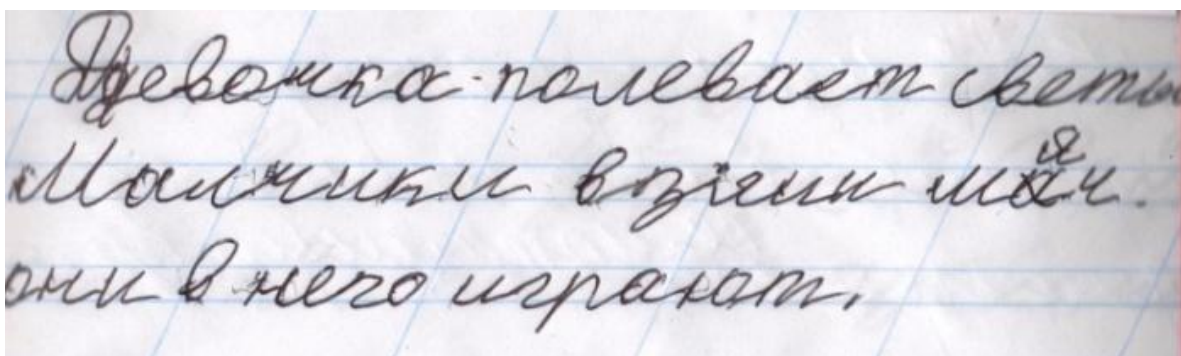 Девочка полевает светы
Малчики взяли мяч.
они в него играют.